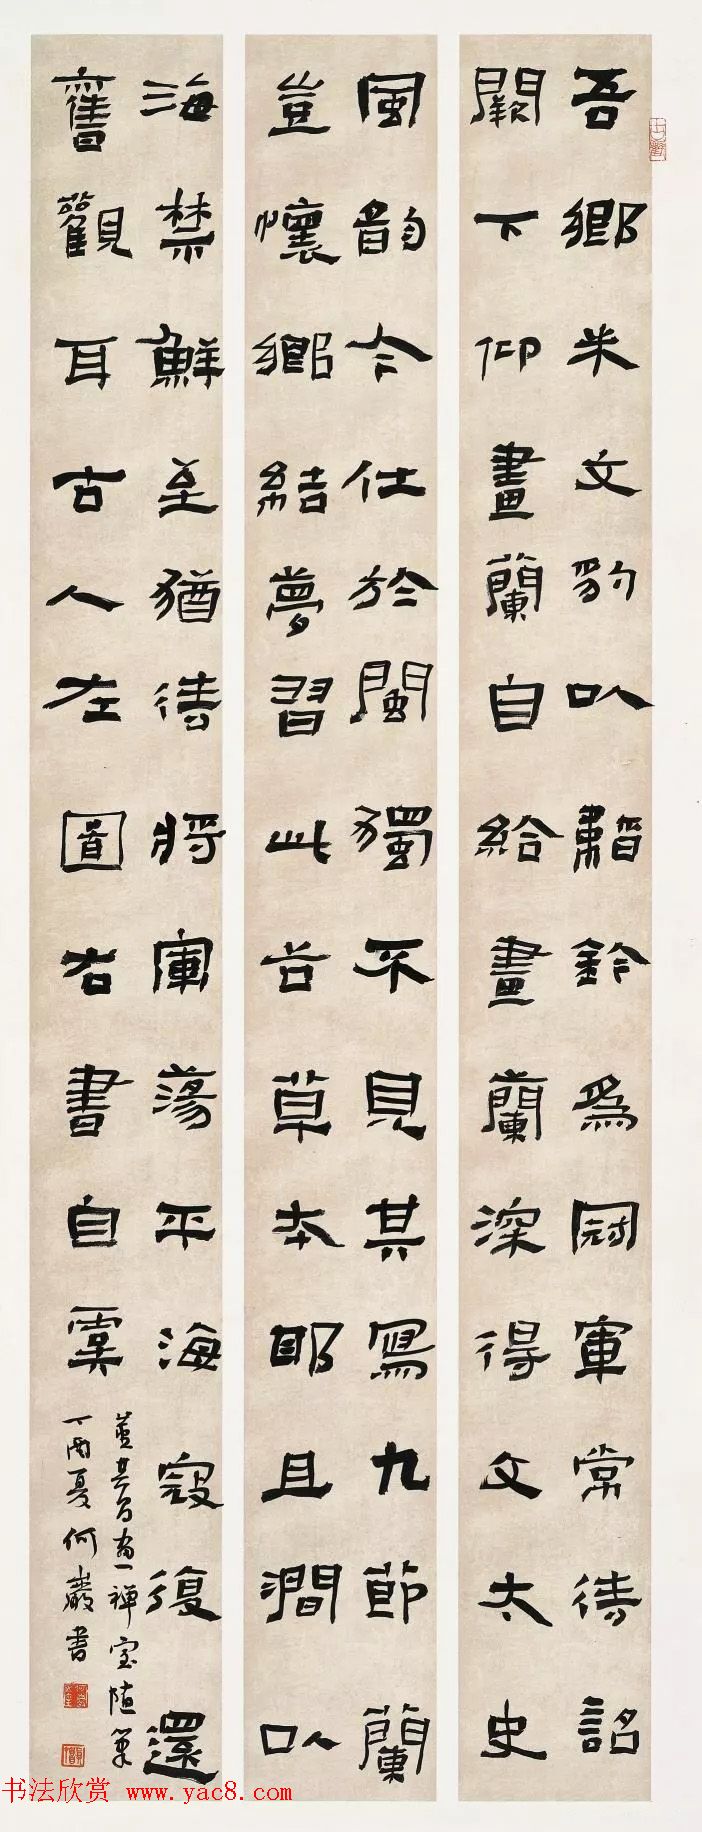 吾鄉米文豹以韜鈐為冠軍常待詔
闕下仰畫蘭自給畫蘭深得文太史
風韵今仕於閩獨不見其寫九節蘭
豈懷鄉結夢習此谷草本耶且澗以
海禁鮮至猶待將軍蕩平海寇復還
舊觀耳古人左圖右書自真
董其昌畫禪室隨筆
丁酉夏何嚴書
书法欣赏 www.yac8.com